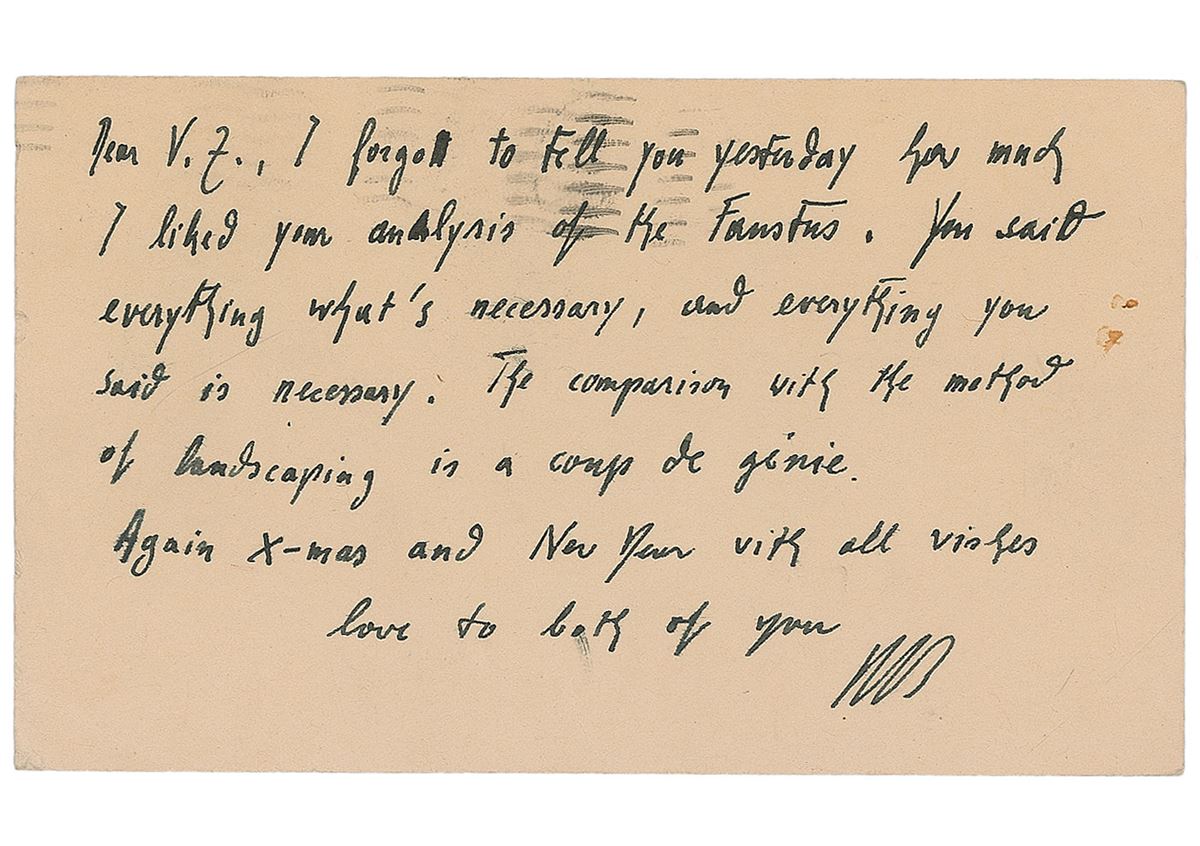 Dear V. Z., I forgot to tell you yesterday how much
I liked your analysis of the Faustus. You said
everything what's necessary, and everything you
said is necessary. The comparison with the method
of landscaping is a coup de génie.
Again X-mas and New Year with all wishes
love to both of you